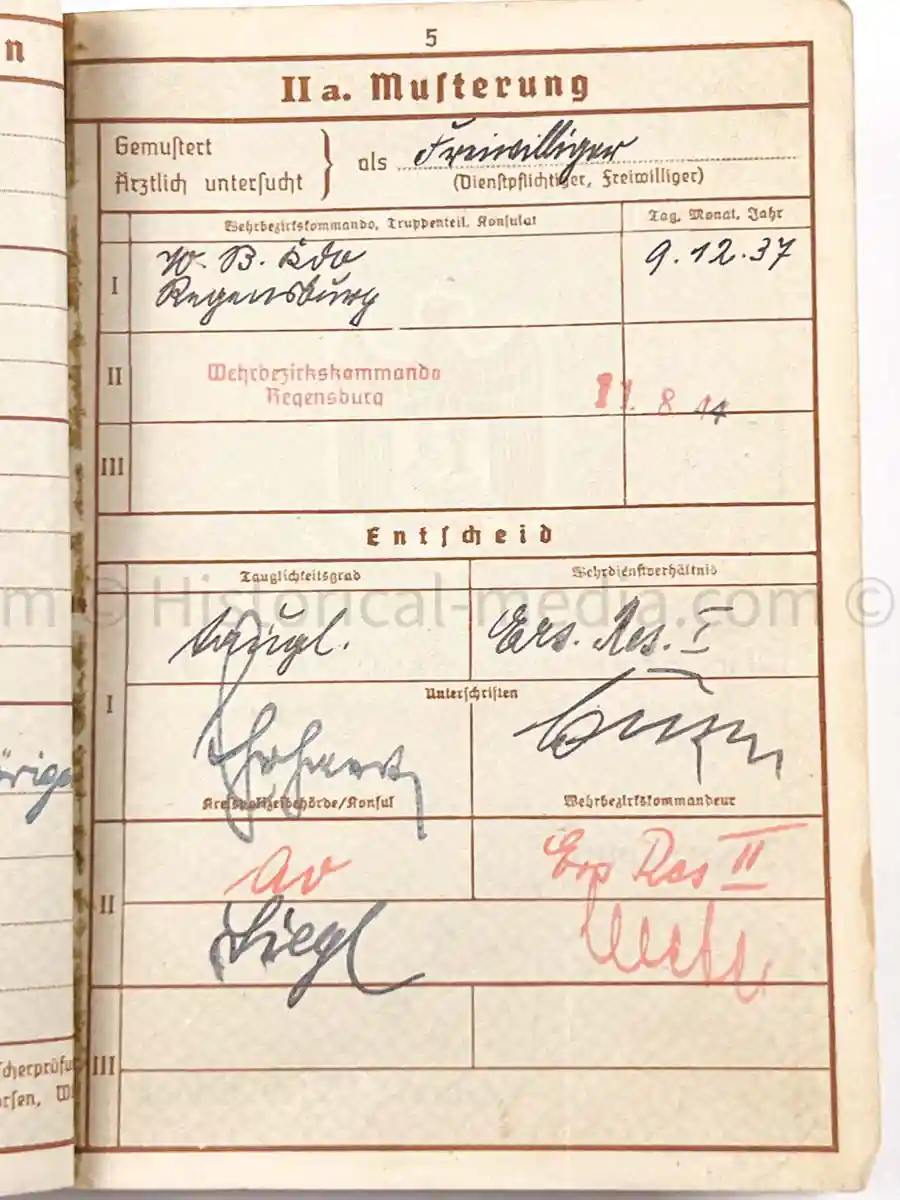 n
5
II a. Muſterung
Gemuſtert
Ärztlich unterſucht
als Freiwilliger
(Dienſtpflichtiger, Freiwilliger)
Wehrbezirkskommando, Truppenteil, Konſulat
Tag, Monat, Jahr
I
W. B. Kdo
Regensburg
9.12.37
II
Wehrbezirkskommando
Regensburg
11. 8 44
III
Entſcheid
Tauglichkeitsgrad
Wehrdienſtverhältnis
m © Historical-media.com ©
I
taugl.
Ers. Res. I
Unterſchriften
Kreispolizeibehörde/Konſul
Wehrbezirkskommandeur
öriga
II
av
Ers Res II
III
ſcherprüfu
orſen, W